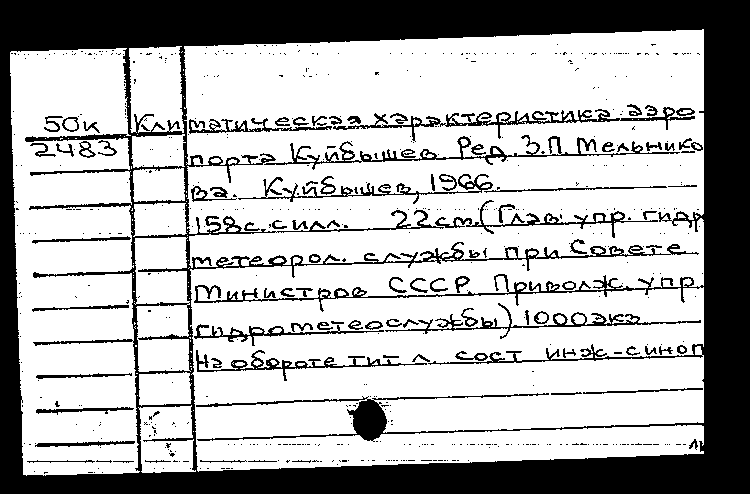 50к Климатическая характеристика аэро-
2483 порта Куйбышев. Ред. З.П. Мельнико
ва. Куйбышев, 1966.
158с. с илл. 22см. (Глав. упр. гидр
метеорол. службы при Совете
Министров СССР. Приволж. упр.
гидрометеослужбы) 1000экз
На обороте тит. л. сост инж-синоп